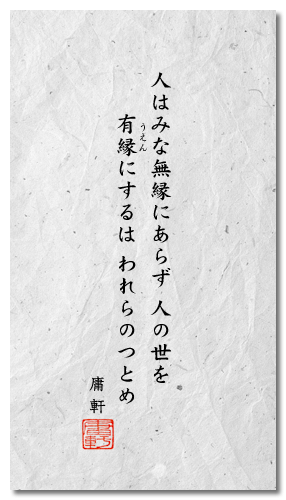 人はみな無縁にあらず 人の世を
有縁にするは われらのつとめ
うえん
庸軒
庸軒